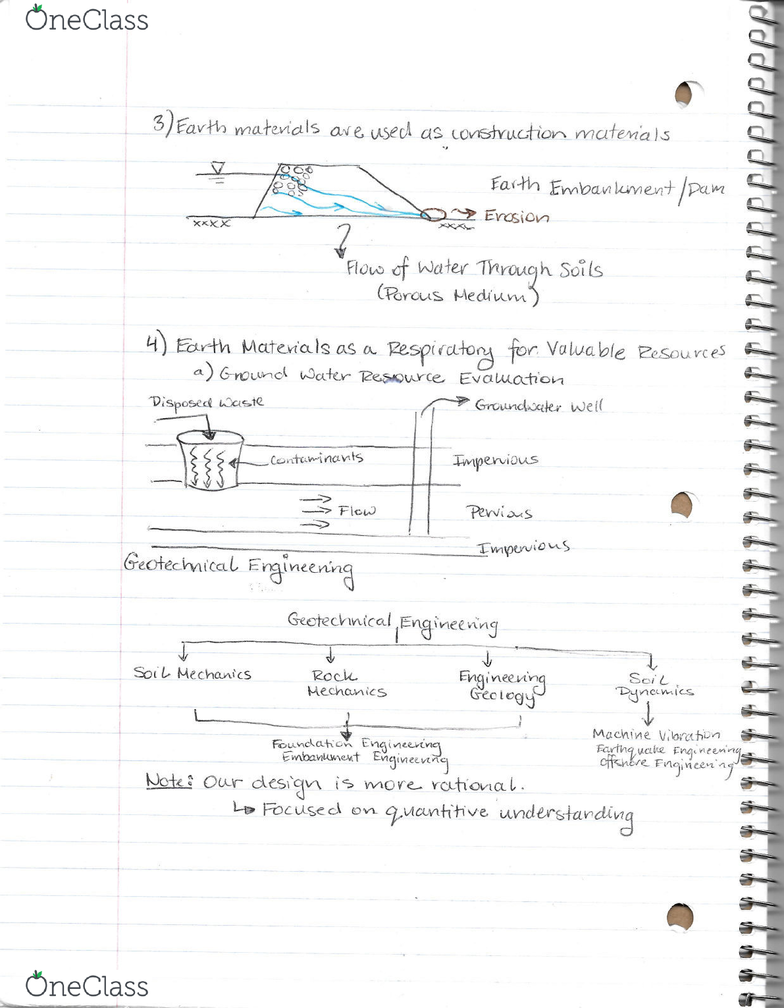 OneClass
3) Earth materials are used as construction materials
Earth Embankment/Dam
Erosion
xxxx
xxxx
Flow of Water Through Soils
(Porous Medium)
4) Earth Materials as a Respiratory for Valuable Resources
a) Ground Water Resource Evaluation
Disposed Waste
Groundwater Well
Contaminants
Impervious
Flow
Pervious
Impervious
Geotechnical Engineering
Geotechnical Engineering
Soil Mechanics
Rock
Mechanics
Engineering
Geology
Soil
Dynamics
Foundation Engineering
Embankment Engineering
Machine Vibration
Earthquake Engineering
Offshore Engineering
Note: Our design is more rational.
↳ Focused on quantitive understanding
OneClass